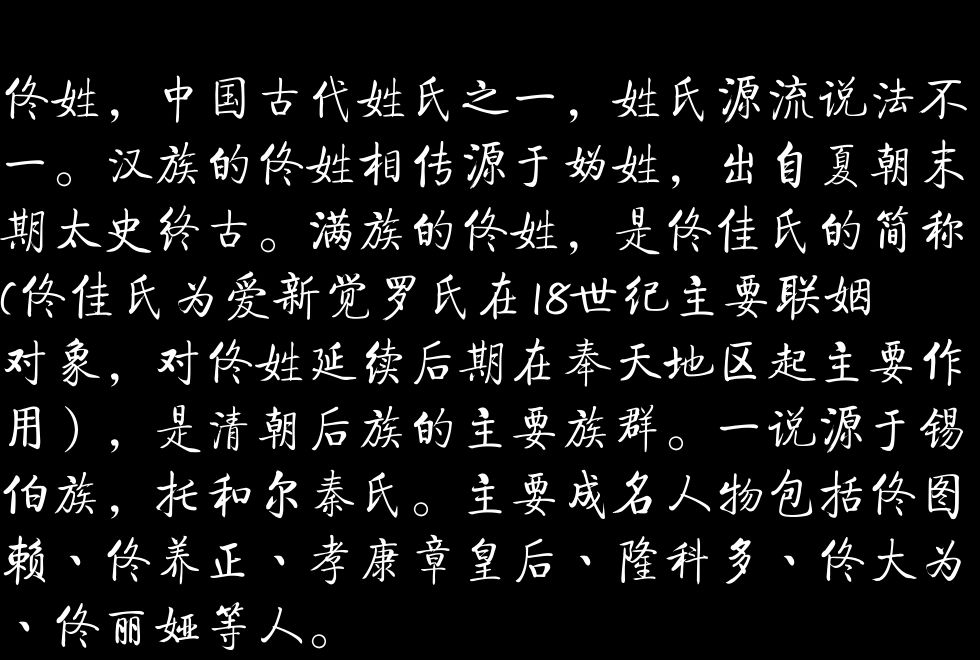 佟姓，中国古代姓氏之一，姓氏源流说法不
一。汉族的佟姓相传源于妫姓，出自夏朝末
期太史终古。满族的佟姓，是佟佳氏的简称
(佟佳氏为爱新觉罗氏在18世纪主要联姻
对象，对佟姓延续后期在奉天地区起主要作
用），是清朝后族的主要族群。一说源于锡
伯族，托和尔秦氏。主要成名人物包括佟图
赖、佟养正、孝康章皇后、隆科多、佟大为
、佟丽娅等人。